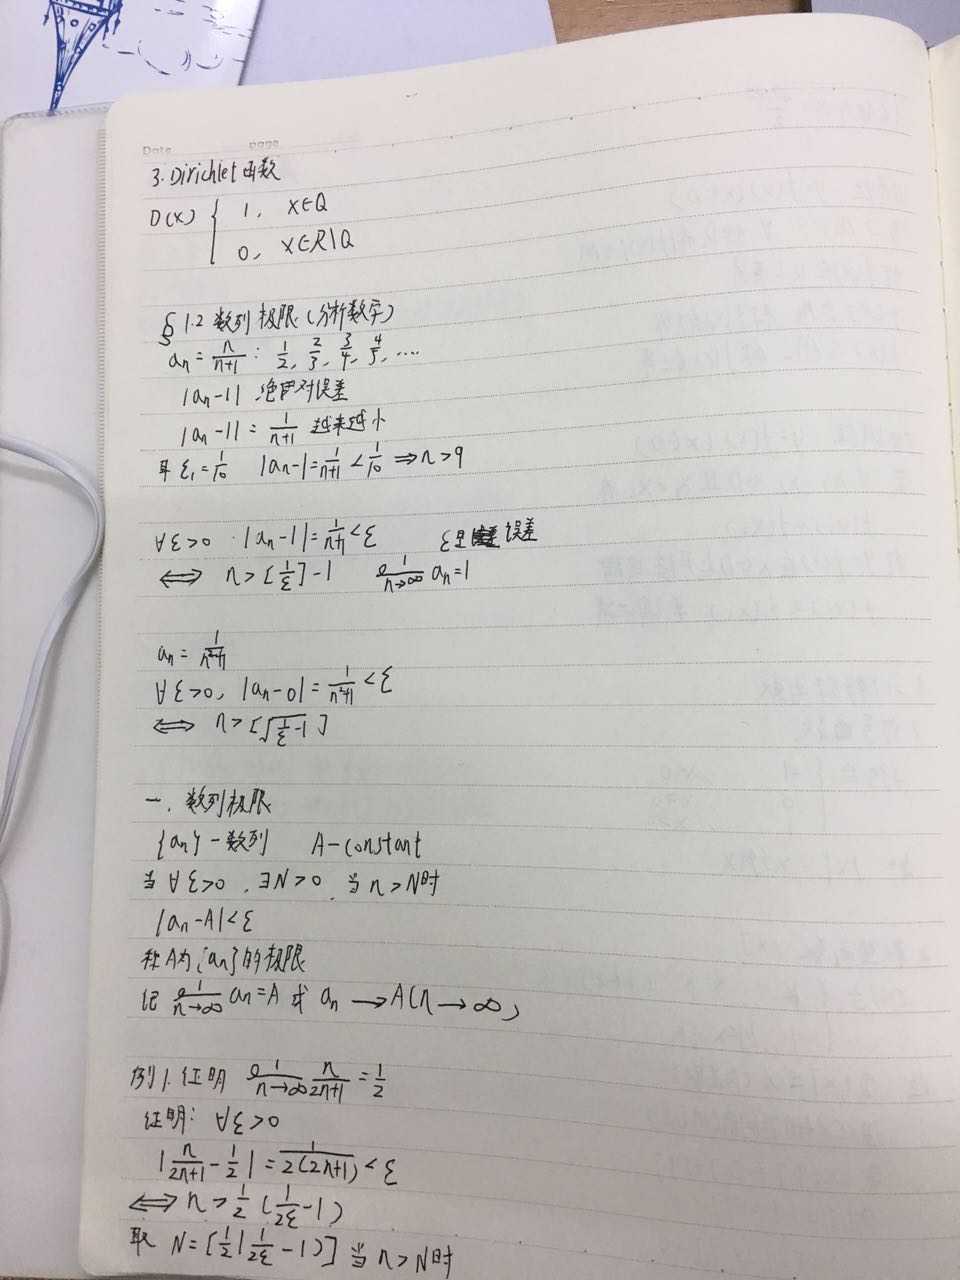 Date page
3. Dirichlet 函数
D(x) { 1, x∈Q
0, x∈R\Q
§1.2 数列极限 (分析数学)
an = n/(n+1) : 1/2, 2/3, 3/4, 4/5, ....
|an-1| 绝对误差
|an-1| = 1/(n+1) 越来越小
取 ε1 = 1/10 |an-1| = 1/(n+1) < 1/10 ⇒ n>9
∀ε>0 |an-1| = 1/(n+1) < ε ε是误差
⟺ n > [1/ε]-1 n→∞ an=1
an = 1/(n²+1)
∀ε>0, |an-0| = 1/(n²+1) < ε
⟺ n > [√(1/ε-1)]
一. 数列极限
{an} - 数列 A-constant
当 ∀ε>0 , ∃N>0 , 当 n>N时
|an-A|<ε
称A为{an}的极限
记 n→∞ an=A 或 an → A(n→∞)
例1. 证明 n→∞ n/(2n+1) = 1/2
证明: ∀ε>0
|n/(2n+1) - 1/2| = 1/(2(2n+1)) < ε
⟺ n > 1/2 (1/2ε - 1)
取 N = [1/2(1/2ε - 1)] 当 n>N时